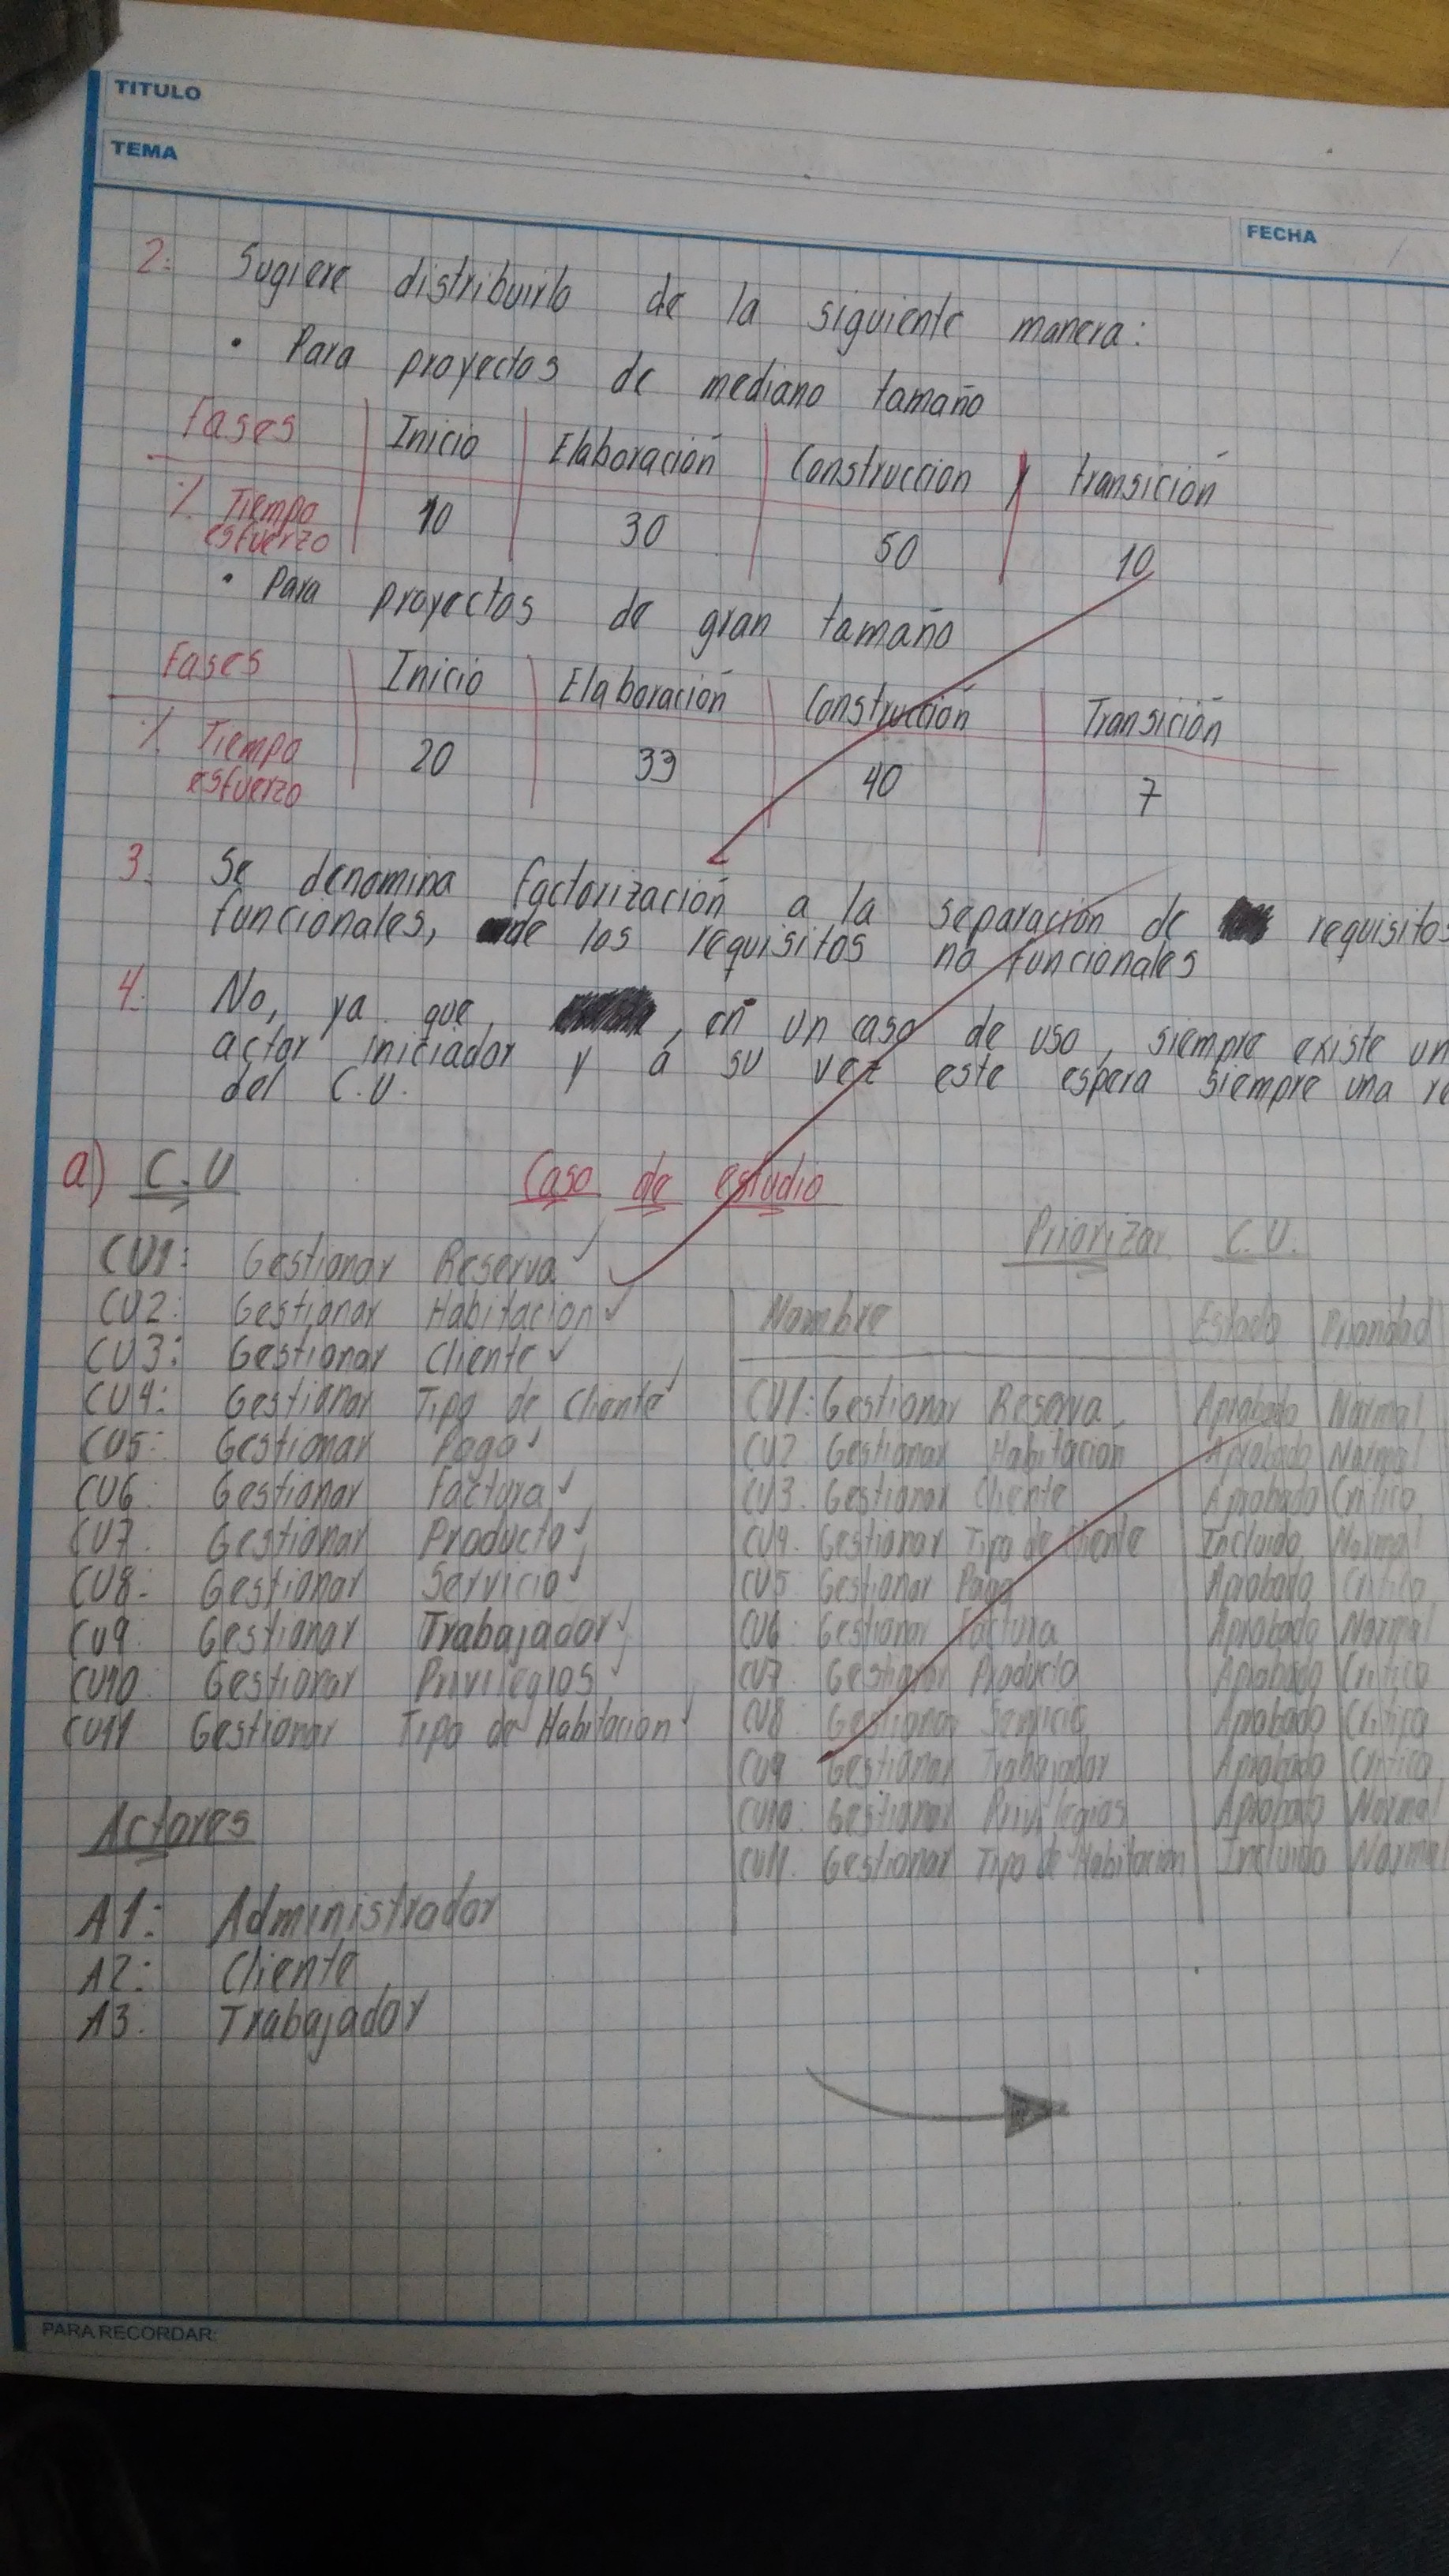 TITULO
TEMA
FECHA
2. Sugiere distribuirlo de la siguiente manera:
• Para proyectos de mediano tamaño
Fases Inicio Elaboración Construccion Transición
% Tiempo esfuerzo 10 30 50 10
• Para proyectos de gran tamaño
Fases Inicio Elaboración Construcción Transición
% Tiempo esfuerzo 20 33 40 7
3. Se denomina factorización a la separación de requisitos
funcionales, de los requisitos no funcionales
4. No, ya que, , en un caso de uso, siempre existe un
actor iniciador y a su vez este espera siempre una
del C.U.
a) C.U Caso de estudio
CU1: Gestionar Reserva
CU2: Gestionar Habitacion
CU3: Gestionar Cliente
CU4: Gestionar Tipo de Cliente
CU5: Gestionar Pago
CU6: Gestionar Factura
CU7. Gestionar Producto
CU8: Gestionar Servicio
CU9 Gestionar Trabajador
CU10 Gestionar Privilegios
CU11 Gestionar Tipo de Habitacion
Actores
A1: Administrador
A2: Cliente
A3: Trabajador
Priorizar C.U.
Nombre Estado Prioridad
CU1: Gestionar Reserva Aprobado Normal
CU2 Gestionar Habitacion Aprobado Normal
CU3. Gestionar Cliente Aprobado Critico
CU4. Gestionar Tipo de Cliente Incluido Normal
CU5 Gestionar Pago Aprobado Critico
CU6: Gestionar Factura Aprobado Normal
CU7 Gestionar Producto Aprobado Critico
CU8 Gestionar Servicio Aprobado Critico
CU9 Gestionar Trabajador Aprobado Critico
CU10: Gestionar Privilegios Aprobado Normal
CU11. Gestionar Tipo de Habitacion Incluido Normal
PARA RECORDAR: